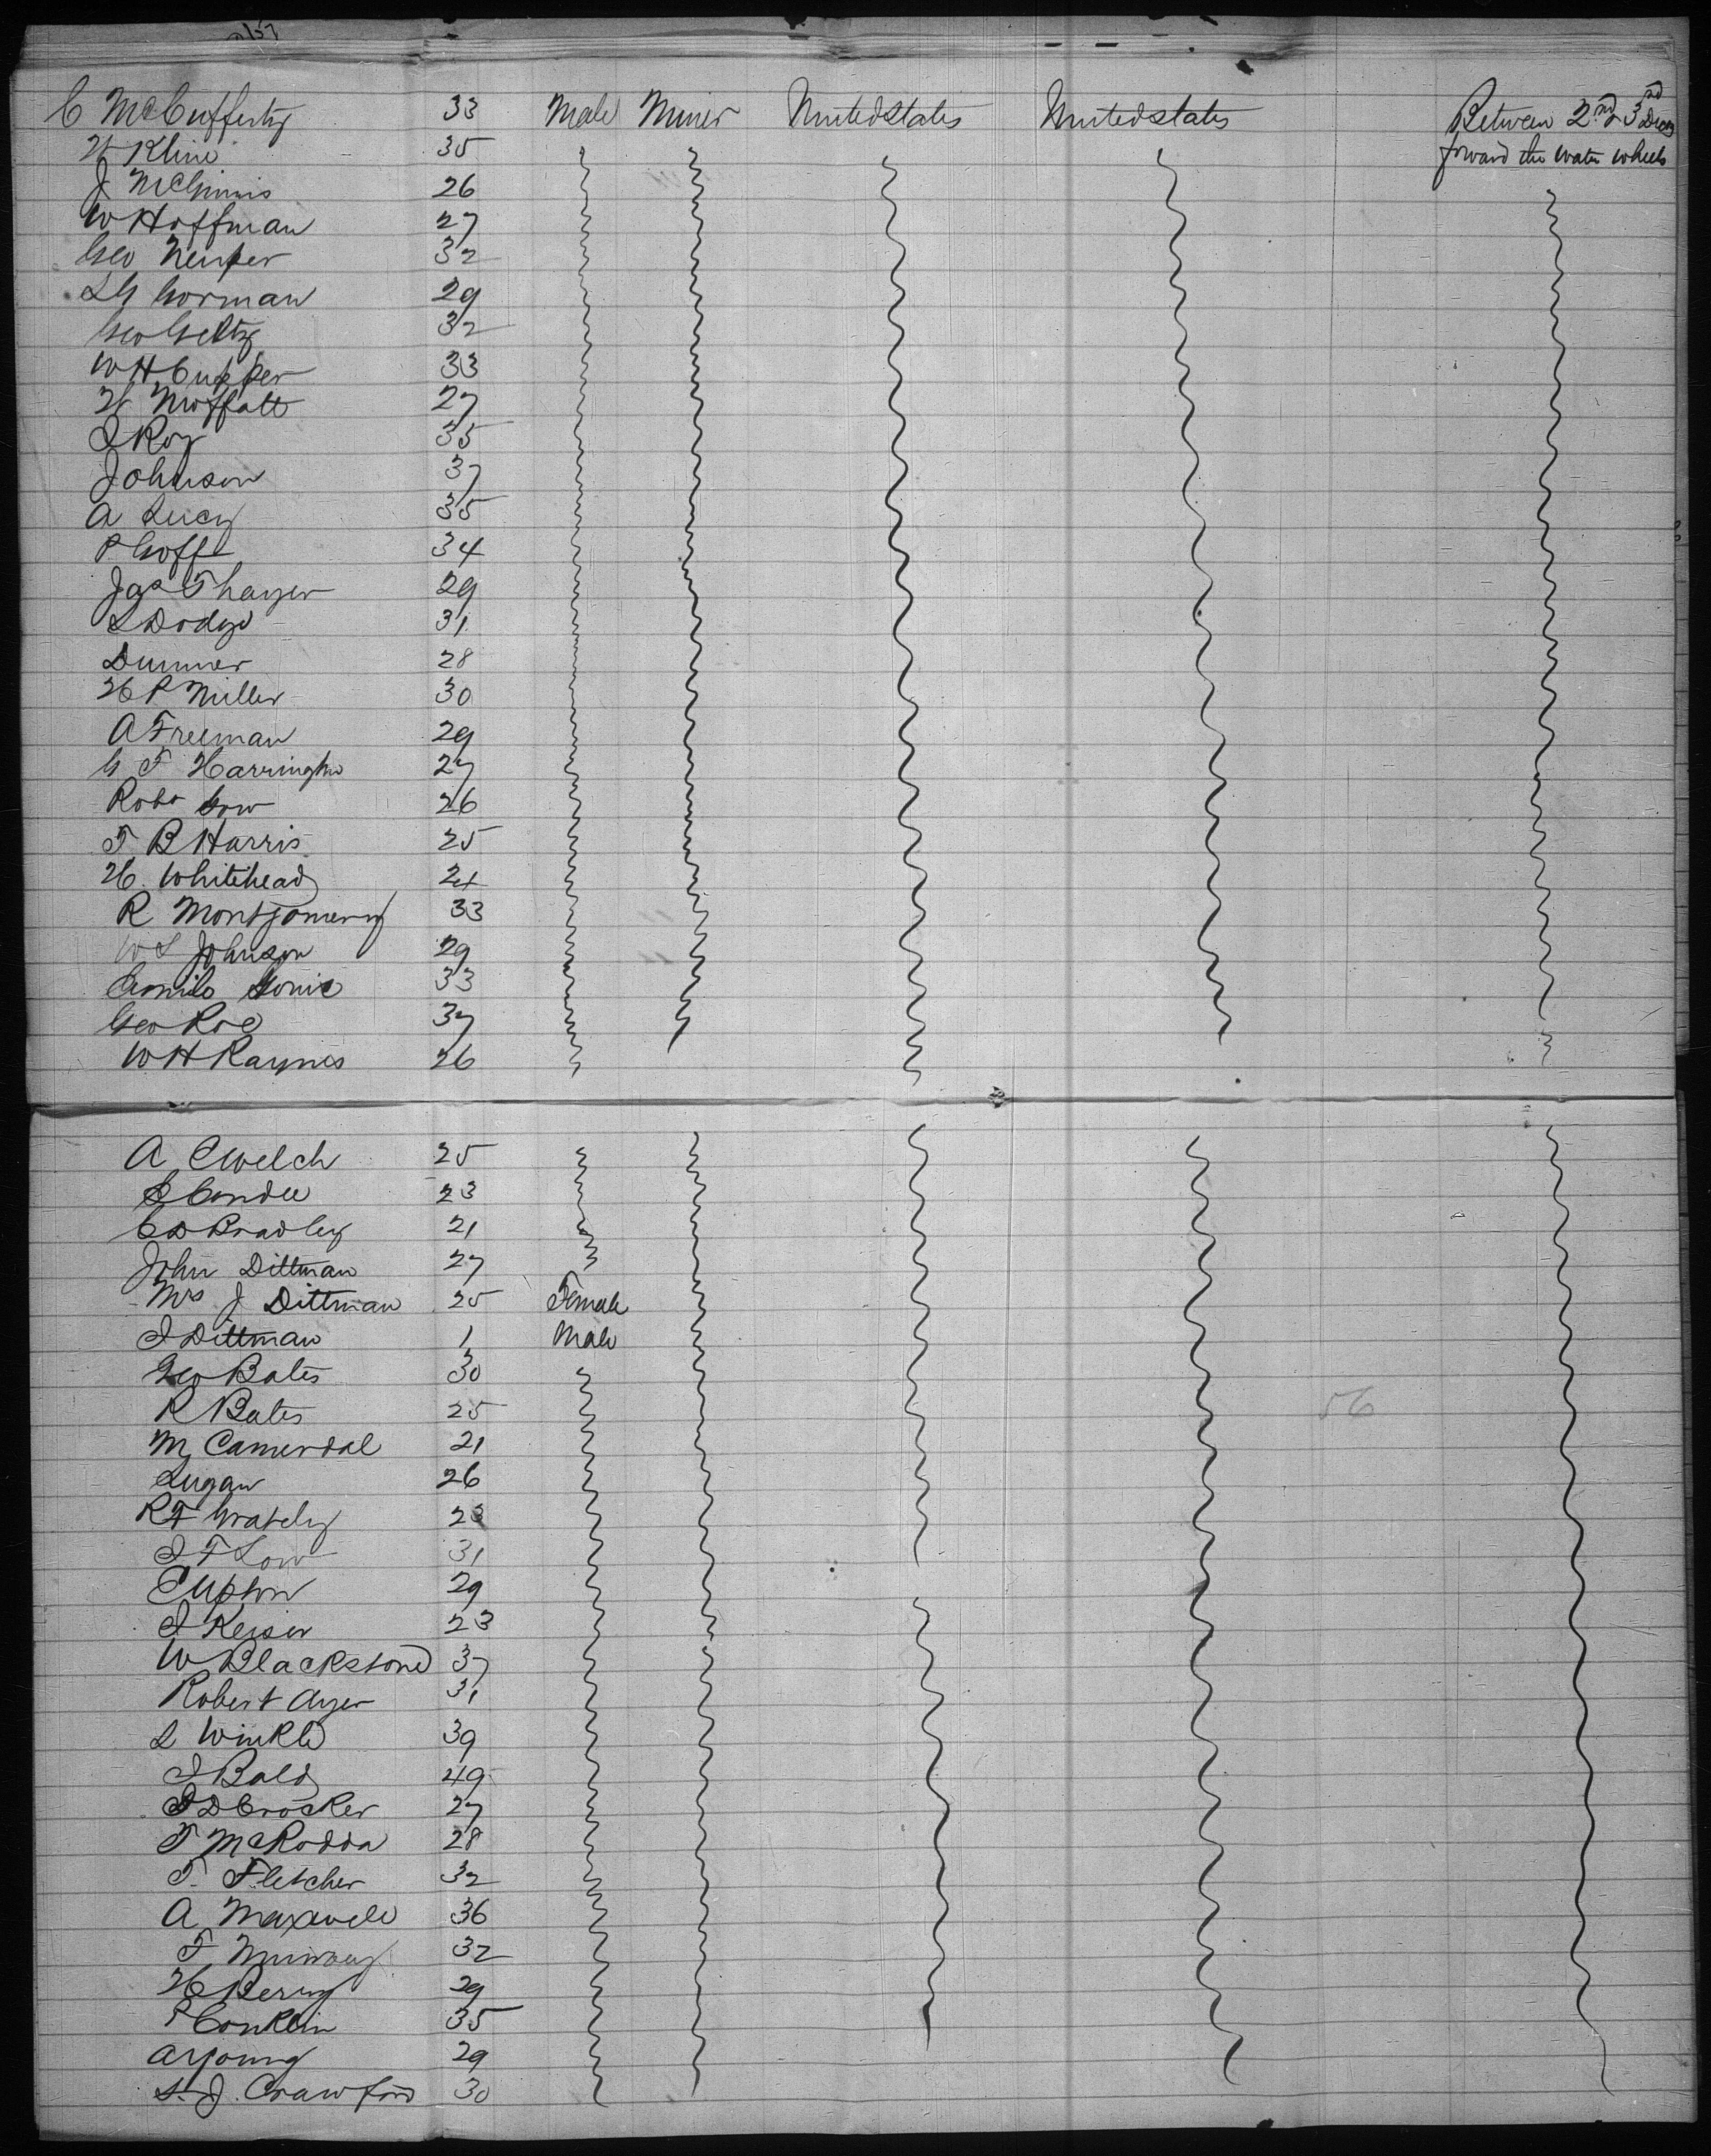 C McCufferty 33 Male Miner United States United States Between 2nd & 3rd Decks
H Kline 35 forward the water wheels
J McGinnis 26
W Hoffman 27
Geo 32
L G Gorman 29
Geo Geltz 32
W H Cupper 33
H Moffatt 27
J Roy 35
Johnson 37
A Lucy 35
P Goff 34
Jas Thayer 29
L Dodge 31
Dummer 28
H P Miller 30
A Freeman 29
G F Harrington 27
Robt Gow 26
T B Harris 25
H. Whitehead 24
R Montgomery 33
W S Johnson 29
33
Geo Roe 37
W H Raynes 26
A C Welch 25
S Condee 23
C D Bradley 21
John Dittman 27
Mrs J Dittman 25 Female
J Dittman 1 Male
Geo Bates 30
R Bates 25 56
M Camerdal 21
Lugan 26
R F Grately 23
J F Low 31
C Upton 29
J Keiser 23
W Blackstone 37
Robert Ayer 31
L Winkle 39
J Bald 49
J D Crocker 27
T McRodda 28
T. Fletcher 32
A Maxwell 36
T Murray 32
H Berry 29
P Conklin 35
A Young 29
S. J. Crawford 30